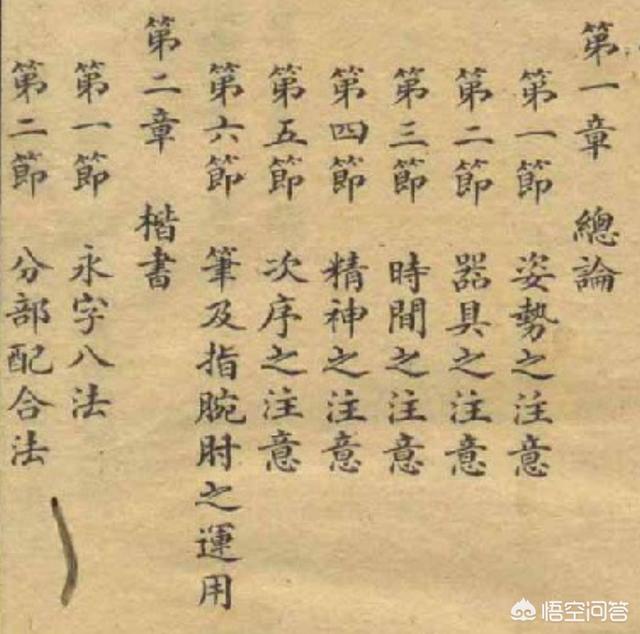 第一章 總論
第一節 姿勢之注意
第二節 器具之注意
第三節 時間之注意
第四節 精神之注意
第五節 次序之注意
第六節 筆及指腕肘之運用
第二章 楷書
第一節 永字八法
第二節 分部配合法
悟空问答